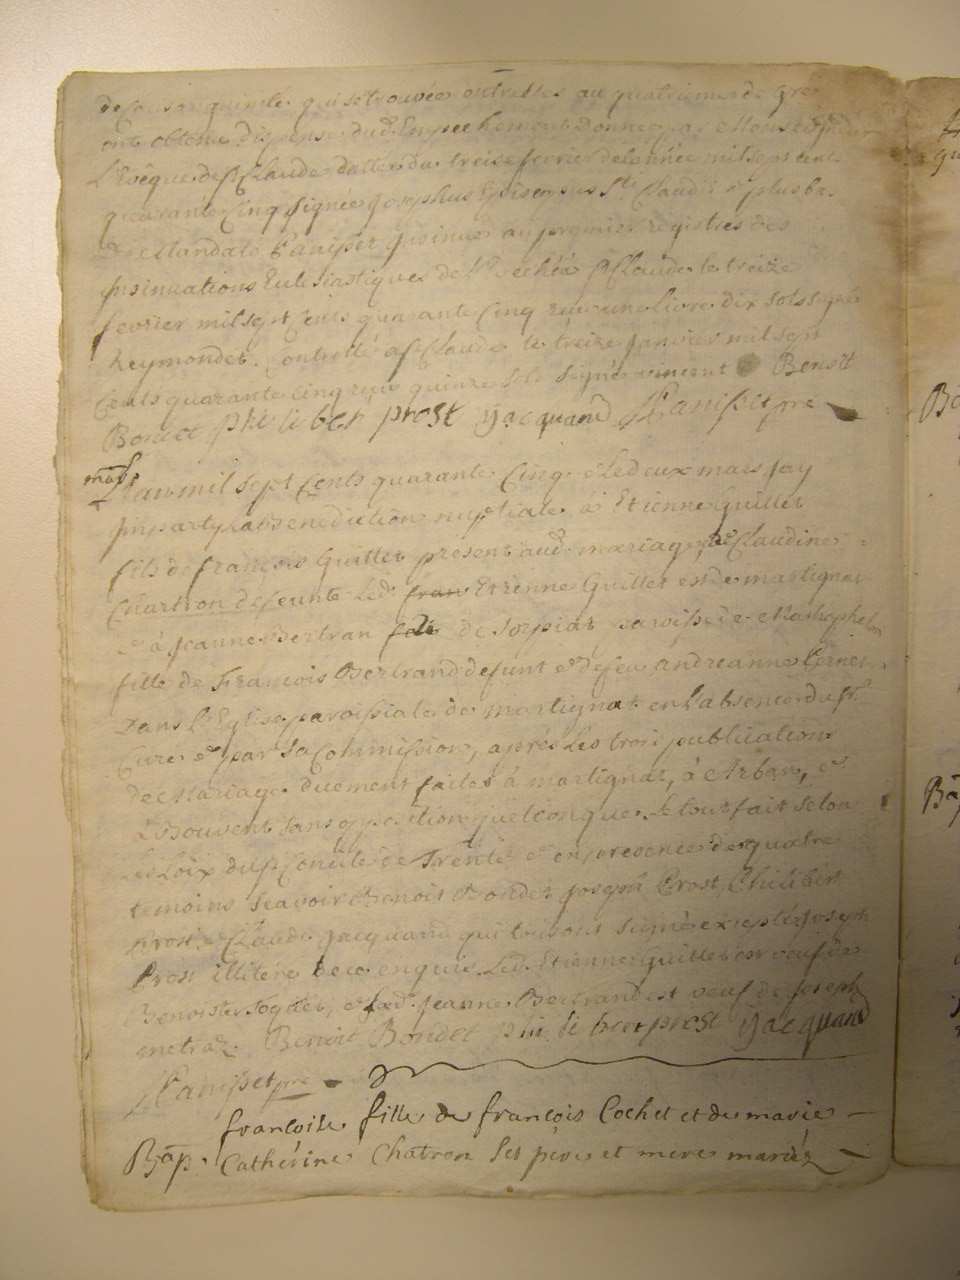 de consanguinité qui se trouvée entre elles au quatrieme degre
ont obtenu dispense dud. Empechement donnée par Monseigneur
L'Evêque de St Claude dattée du treise fevrier de lannée mil sept cent
quarante Cinq signée Josephus Episcopus Sti Claudii & plus bas
De Mandato insinué au premier registres des
insinuations Eclesiastiques de L'Evechéé St Claude le treize
fevrier mil sept Cents quarante Cinq reçu une livre dix sols signé
Reymondet. Controllé a St Claude le treize Janvier mil sept
Cents quarante Cinq reçu quinze sols signé vincent Benoit
Bondet philiber prost jjacquand pre
mar. L'an mil sept Cents quarante Cinq & Le deux mars jay
imparty la benediction nuptiale à Etienne Guillet
fils de françois Guillet present aud. mariage, & de Claudine
Chartron defeunte Led. fran Etienne Guillet est de martignat
& à Jeanne Bertran de paroisse de
fille de François Bertrand defunt & de feu andreanne
Dans L'Eglise paroissiale de martignat en l'absence du Sr.
Curé & par sa Commission, aprés Les trois publications
de Mariage duement faites à martignat, à Arban, &
à Bouvent sans opposition quelconque. Le tout fait selon
Les Loix du St Concile de Trente & en presence de quatre
temoins scavoir Benoit Bondet, joseph Prost, Philibert
Prost & Claude Jacquand qui tous ont signé excepté Joseph
Prost illiteré de ce enquis. Led. Etienne Guillet est veuf de
Benoiste & Lad. Jeanne Bertrand est veuf de Joseph
metraz. Benoit Bondet philiber prost jjacquand
pre
francoise fille de françois Cochet et de marie
Bap. Cathérine Chatron ses pere et mere mariéz